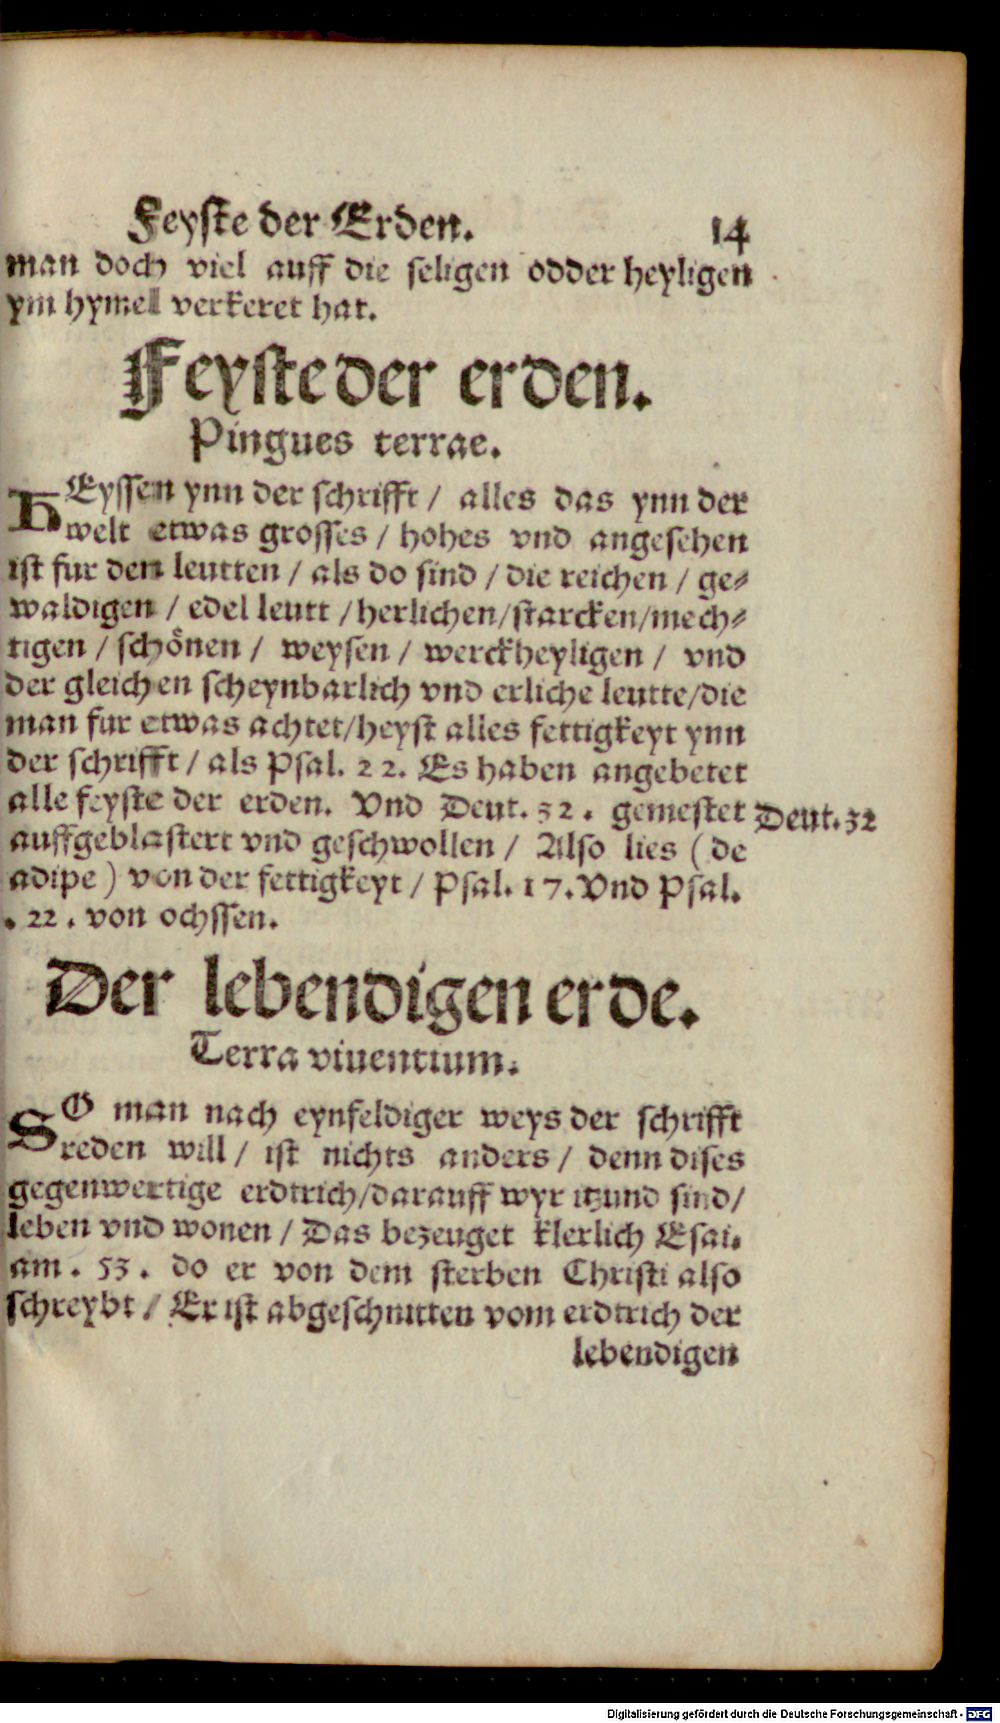 Feyste der Erden. 14
man doch viel auff die seligen odder heyligen
ym hymel verkeret hat.
Feyste der erden.
Pingues terrae.
HEyssen ynn der schrifft / alles das ynn der
welt etwas grosses / hohes vnd angesehen
ist fur den leutten / als do sind / die reichen / ge⸗
waldigen / edel leutt / herlichen/starcken/mech⸗
tigen / schoͤnen / weysen / werckheyligen / vnd
der gleichen scheynbarlich vnd erliche leutte/die
man fur etwas achtet/heyst alles fettigkeyt ynn
der schrifft / als Psal. 22. Es haben angebetet
alle feyste der erden. Vnd Deut. 32. gemestet
Deut. 32
auffgeblastert vnd geschwollen / Also lies (de
adipe) von der fettigkeyt / Psal. 17. Vnd Psal.
. 22. von ochssen.
Der lebendigen erde.
Terra viuentium.
SO man nach eynfeldiger weys der schrifft
reden will / ist nichts anders / denn dises
gegenwertige erdtrich/darauff wyr itzund sind/
leben vnd wonen / Das bezeuget klerlich Esai.
am . 53. do er von dem sterben Christi also
schreybt / Er ist abgeschnitten vom erdtrich der
lebendigen
Digitalisierung gefördert durch die Deutsche Forschungsgemeinschaft - DFG